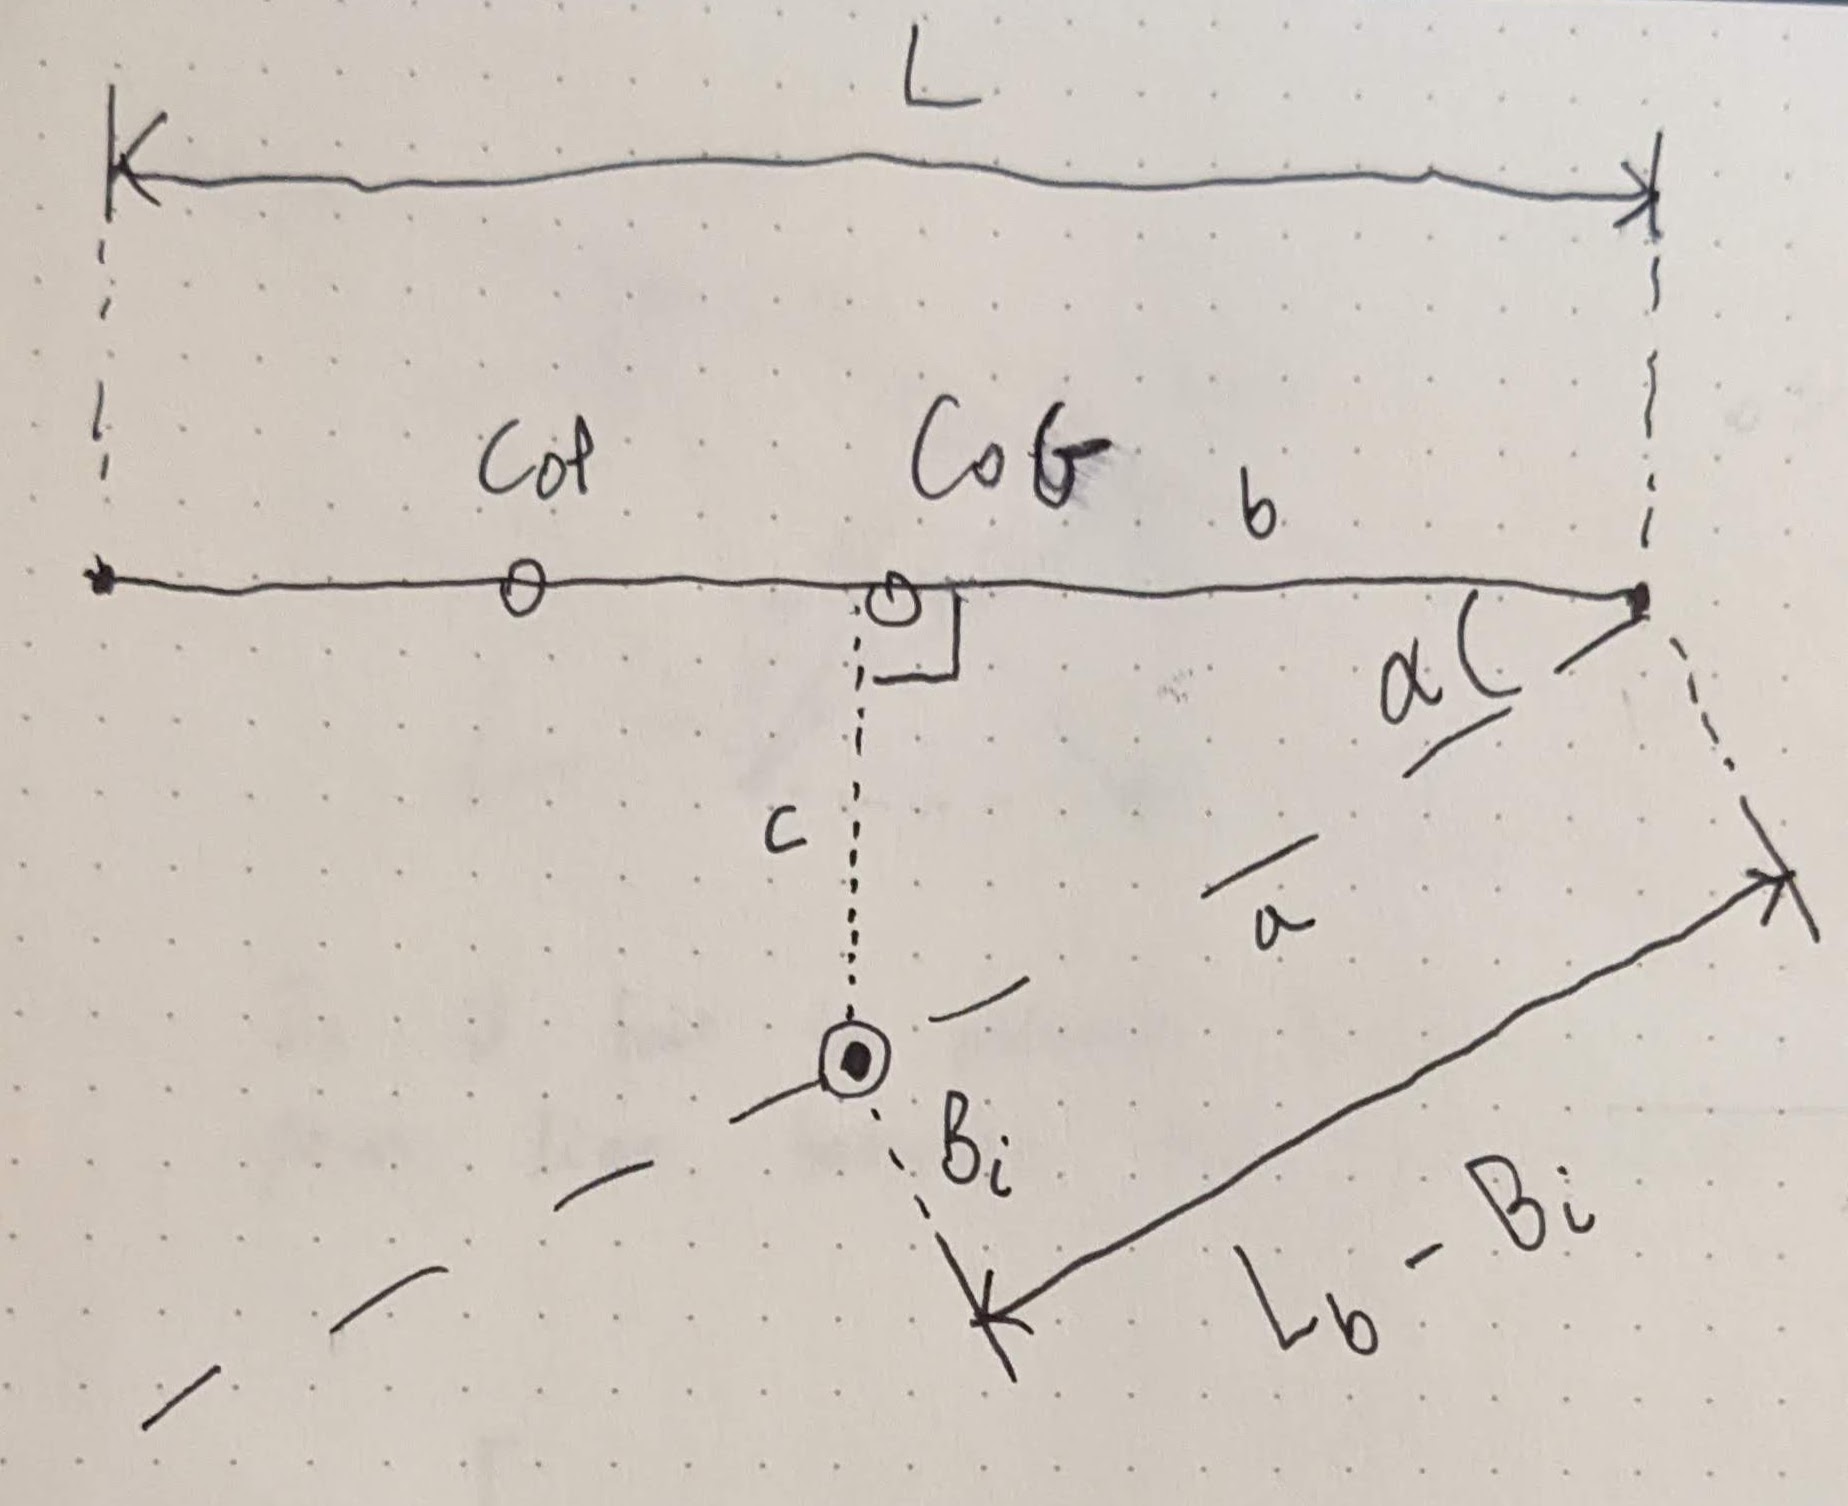 L
CoP
CoG
b
α
c
a
Bi
Lb - Bi